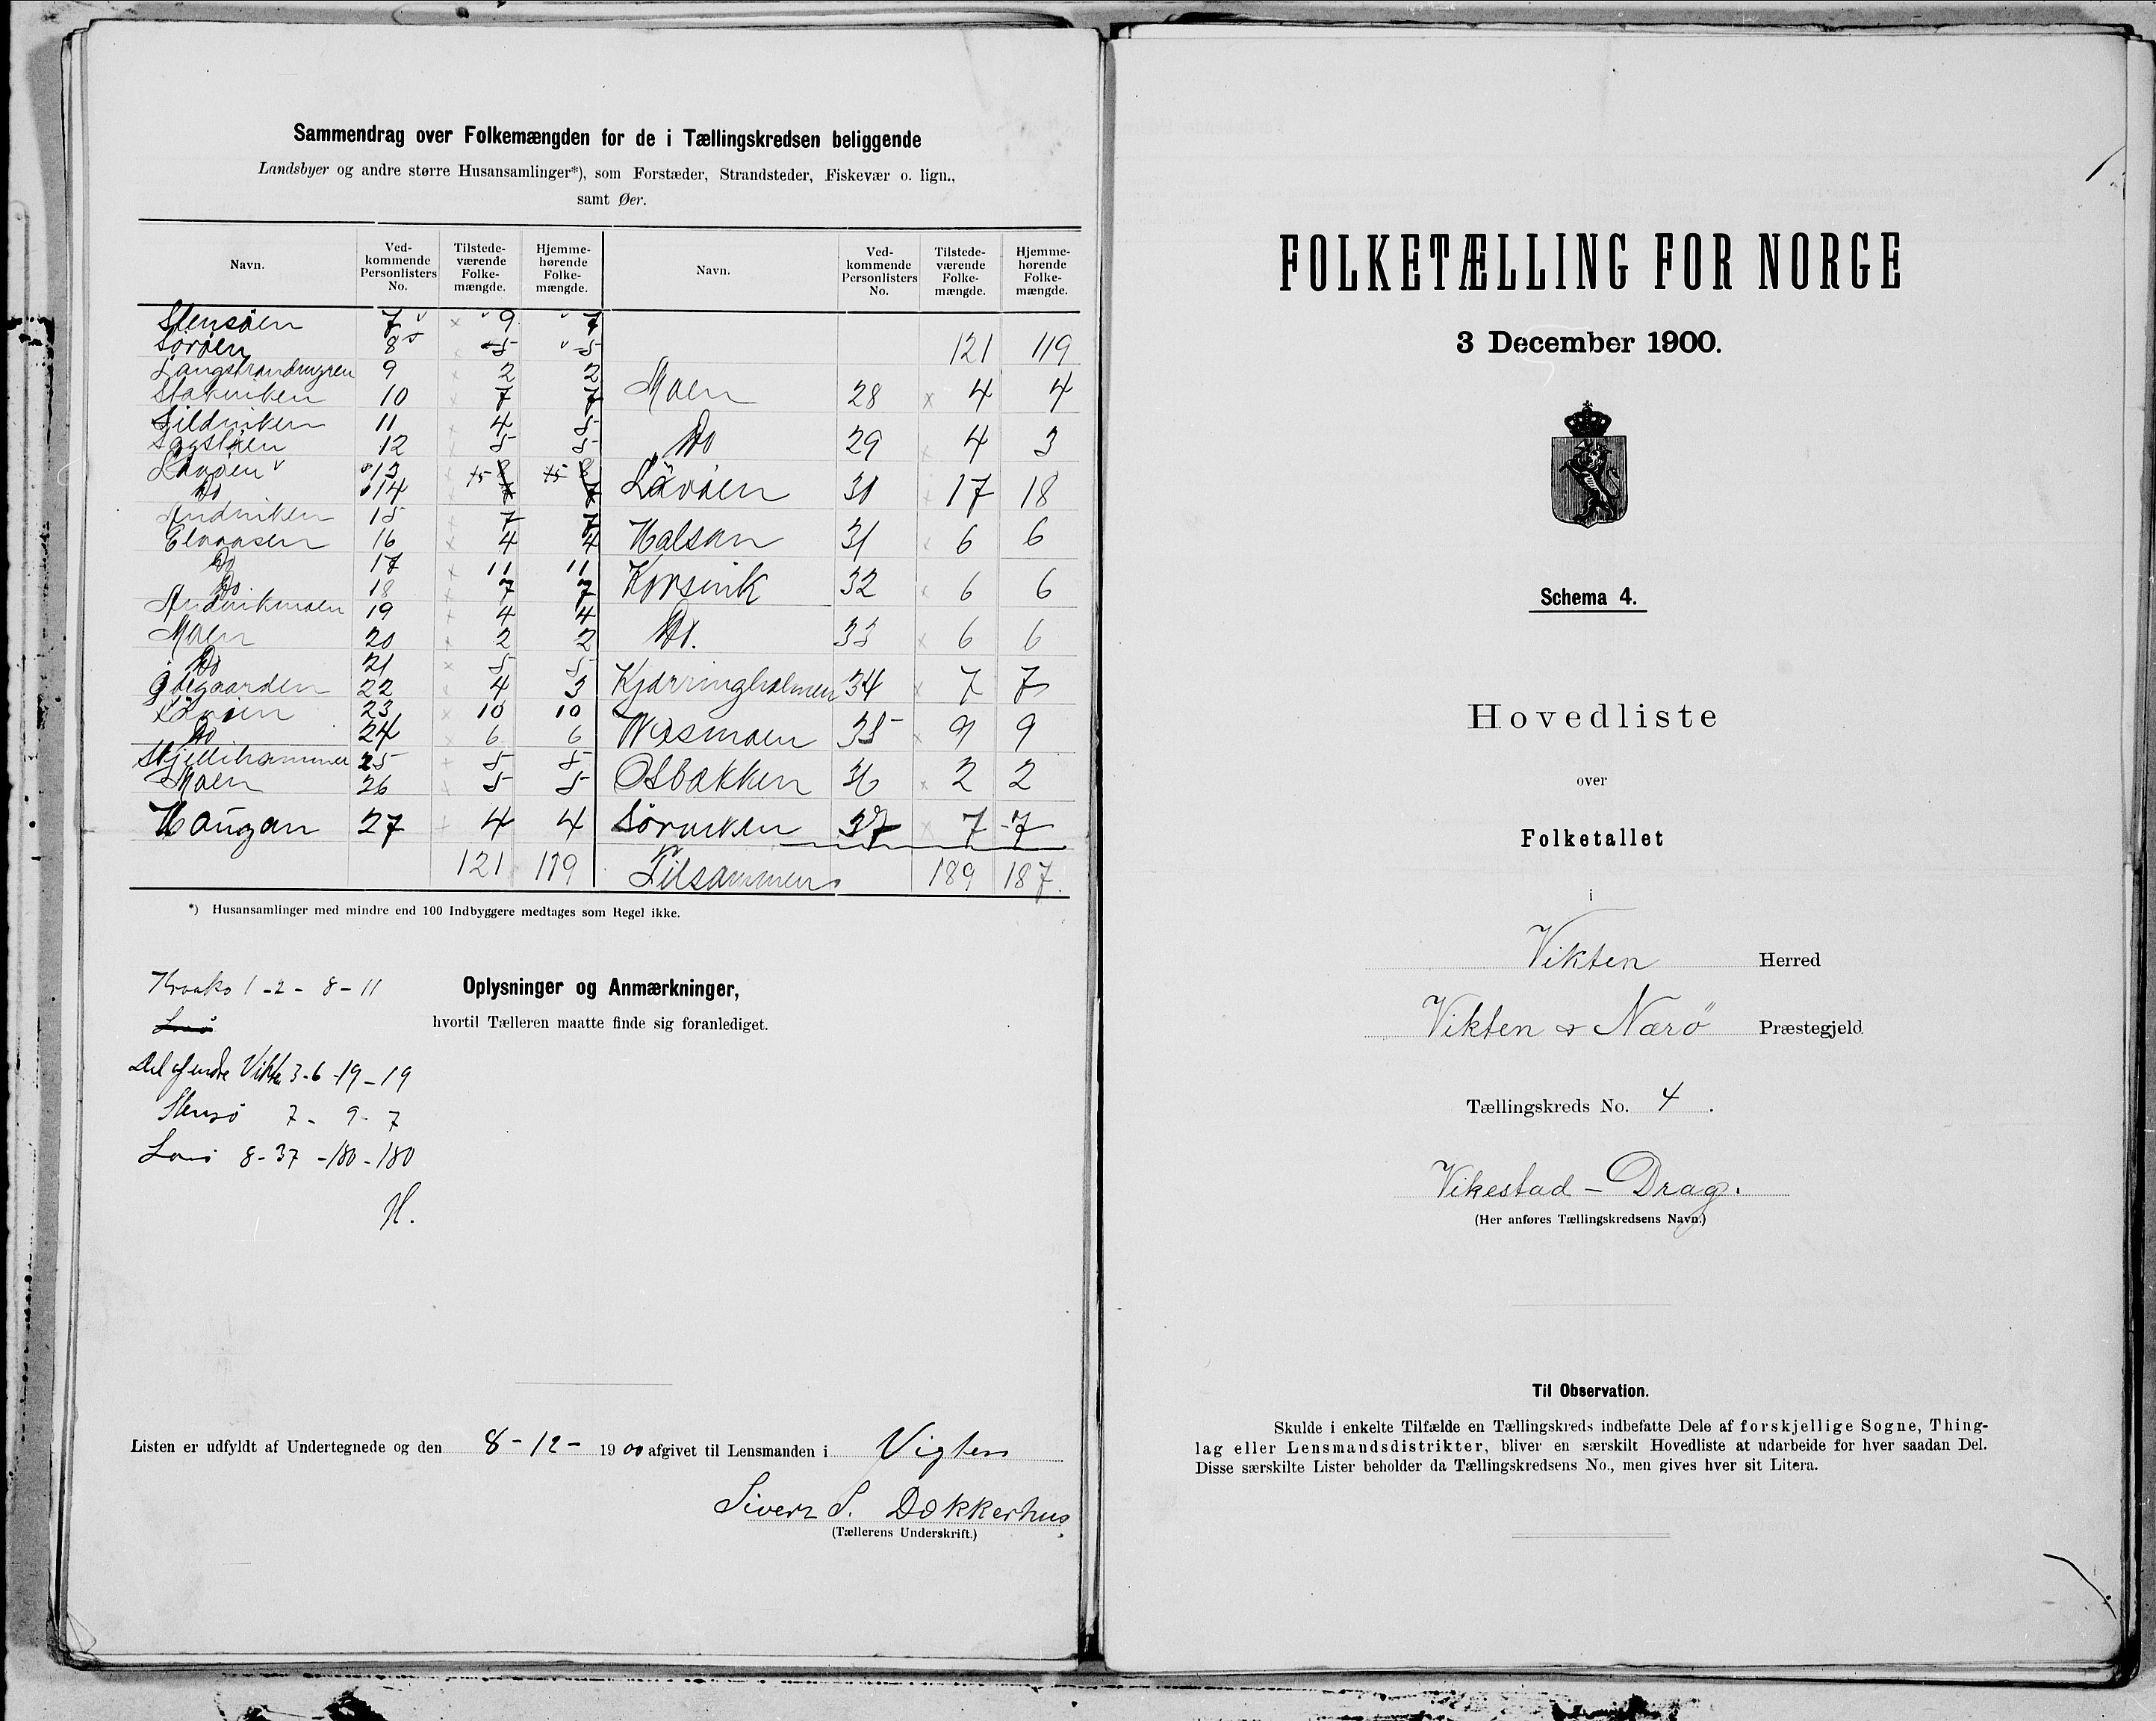 Sammendrag over Folkemængden for de i Tællingskredsen beliggende
Landsbyer og andre større Husansamlinger*), som Forstæder, Strandsteder, Fiskevær o. lign.,
samt Øer.
Navn. Ved-kommende Personlisters No. Tilstede-værende Folke-mængde. Hjemme-hørende Folke-mængde.
Stensøen 7 9 7
Sørøen 8 5 5
Langstrandmyren 9 2 2
Stakviken 10 7 7
Sildviken 11 4 5
Sagstøen 12 5 5
Lavøen 13
Do 14
Andviken 15 7 7
Elvaasen 16 4 4
Do 17 11 11
Do. 18 7 7
Andvikmoen 19 4 4
Moen 20 2 2
Do 21 5 5
22 4 3
Lävøen 23 10 10
Do 24 6 6
Skjellihammer 25 5 5
Moen 26 5 5
Haugan 27 4 4
121 119
Navn. Ved-kommende Personlisters No. Tilstede-værende Folke-mængde. Hjemme-hørende Folke-mængde.
121 119
Moen 28 4 4
Do 29 4 3
Lävøen 30 17 18
Halsan 31 6 6
Korsvik 32 6 6
Do. 33 6 6
Kjærringholmen 34 7 7
35 9 9
Osbakken 36 2 2
Sørviken 37 7 7
Tilsammen 189 187.
*) Husansamlinger med mindre end 100 Indbyggere medtages som Regel ikke.
Oplysninger og Anmærkninger,
hvortil Tælleren maatte finde sig foranlediget.
Kraakø 1-2- 8-11
Del af indre Vikten 3-6-19-19
Stensø 7- 9- 7
Lavø 8-37-180-180
H.
Listen er udfyldt af Undertegnede og den 8-12- 1900 afgivet til Lensmanden i Vigten
Sivert S. Dokkerhus
(Tællerens Underskrift.)
FOLKETÆLLING FOR NORGE
3 December 1900.
Schema 4.
Hovedliste
over
Folketallet
i
Vikten Herred
Vikten & Nærö Præstegjeld
Tællingskreds No. 4.
Vikestad - Drag.
(Her anføres Tællingskredsens Navn.)
Til Observation.
Skulde i enkelte Tilfælde en Tællingskreds indbefatte Dele af forskjellige Sogne, Thing-
lag eller Lensmandsdistrikter, bliver en særskilt Hovedliste at udarbeide for hver saadan Del.
Disse særskilte Lister beholder da Tællingskredsens No., men gives hver sit Litera.